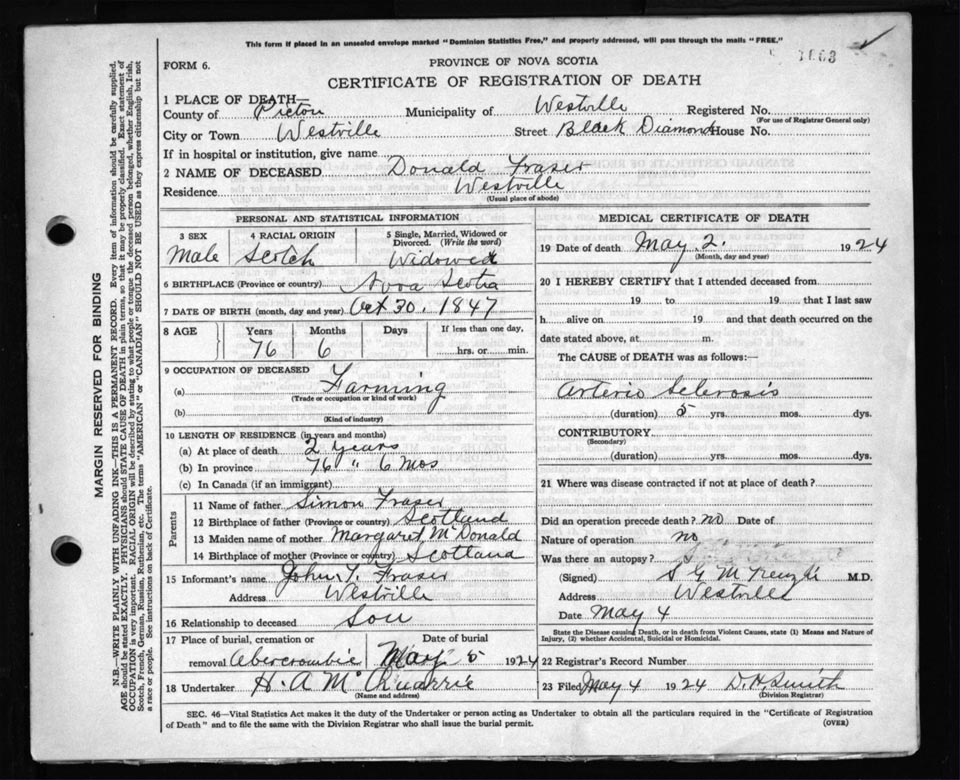 This form if placed in an unsealed envelope marked "Dominion Statistics Free," and properly addressed, will pass through the mails "FREE."
FORM 6.
PROVINCE OF NOVA SCOTIA
CERTIFICATE OF REGISTRATION OF DEATH
1 PLACE OF DEATH—
County of Pictou Municipality of Westville Registered No.
(For use of Registrar General only)
City or Town Westville Street Black Diamond House No.
If in hospital or institution, give name
2 NAME OF DECEASED Donald Fraser
Residence Westville
(Usual place of abode)
MARGIN RESERVED FOR BINDING
N.B.—WRITE PLAINLY WITH UNFADING INK—THIS IS A PERMANENT RECORD. Every item of information should be carefully supplied.
AGE should be stated EXACTLY. PHYSICIANS should STATE CAUSE OF DEATH in plain terms, so that it may be properly classified. Exact statement of
OCCUPATION is very important. RACIAL ORIGIN will be described by stating to what people or tongue the deceased person belonged, whether English, Irish,
Scotch, French, German, Russian, Ruthenian, etc. The terms "AMERICAN" or "CANADIAN" SHOULD NOT BE USED as they express citizenship but not
a race or people. See instructions on back of Certificate.
PERSONAL AND STATISTICAL INFORMATION
3 SEX 4 RACIAL ORIGIN 5 Single, Married, Widowed or
Divorced. (Write the word)
Male Scotch Widowed
6 BIRTHPLACE (Province or country) Nova Scotia
7 DATE OF BIRTH (month, day and year) Oct 30. 1847
8 AGE Years Months Days If less than one day,
76 6 hrs. or min.
9 OCCUPATION OF DECEASED
(a) Farming
(Trade or occupation or kind of work)
(b)
(Kind of industry)
10 LENGTH OF RESIDENCE (in years and months)
(a) At place of death 2 years
(b) In province 76 " 6 mos
(c) In Canada (if an immigrant)
Parents
11 Name of father Simon Fraser
12 Birthplace of father (Province or country) Scotland
13 Maiden name of mother Margaret McDonald
14 Birthplace of mother (Province or country) Scotland
15 Informant's name John T. Fraser
Address Westville
16 Relationship to deceased Son
17 Place of burial, cremation or Date of burial
removal Abercrombie May 5 1924
18 Undertaker H. A McQuarrie
(Name and address)
MEDICAL CERTIFICATE OF DEATH
19 Date of death May 2. 1924
(Month, day and year)
20 I HEREBY CERTIFY that I attended deceased from
19 to 19 that I last saw
h alive on 19 and that death occurred on the
date stated above, at m.
The CAUSE of DEATH was as follows:—
Arterio Sclerosis
(duration) 5 yrs. mos. dys.
CONTRIBUTORY
(Secondary)
(duration) yrs. mos. dys.
21 Where was disease contracted if not at place of death?
Did an operation precede death? no Date of
Nature of operation no
Was there an autopsy?
(Signed) S G McKenzie M.D.
Address Westville
Date May 4
State the Disease causing Death, or in death from Violent Causes, state (1) Means and Nature of
Injury, (2) whether Accidental, Suicidal or Homicidal.
22 Registrar's Record Number
23 Filed May 4 1924 D. H. Smith
(Division Registrar)
SEC. 46—Vital Statistics Act makes it the duty of the Undertaker or person acting as Undertaker to obtain all the particulars required in the "Certificate of Registration
of Death" and to file the same with the Division Registrar who shall issue the burial permit. (OVER)